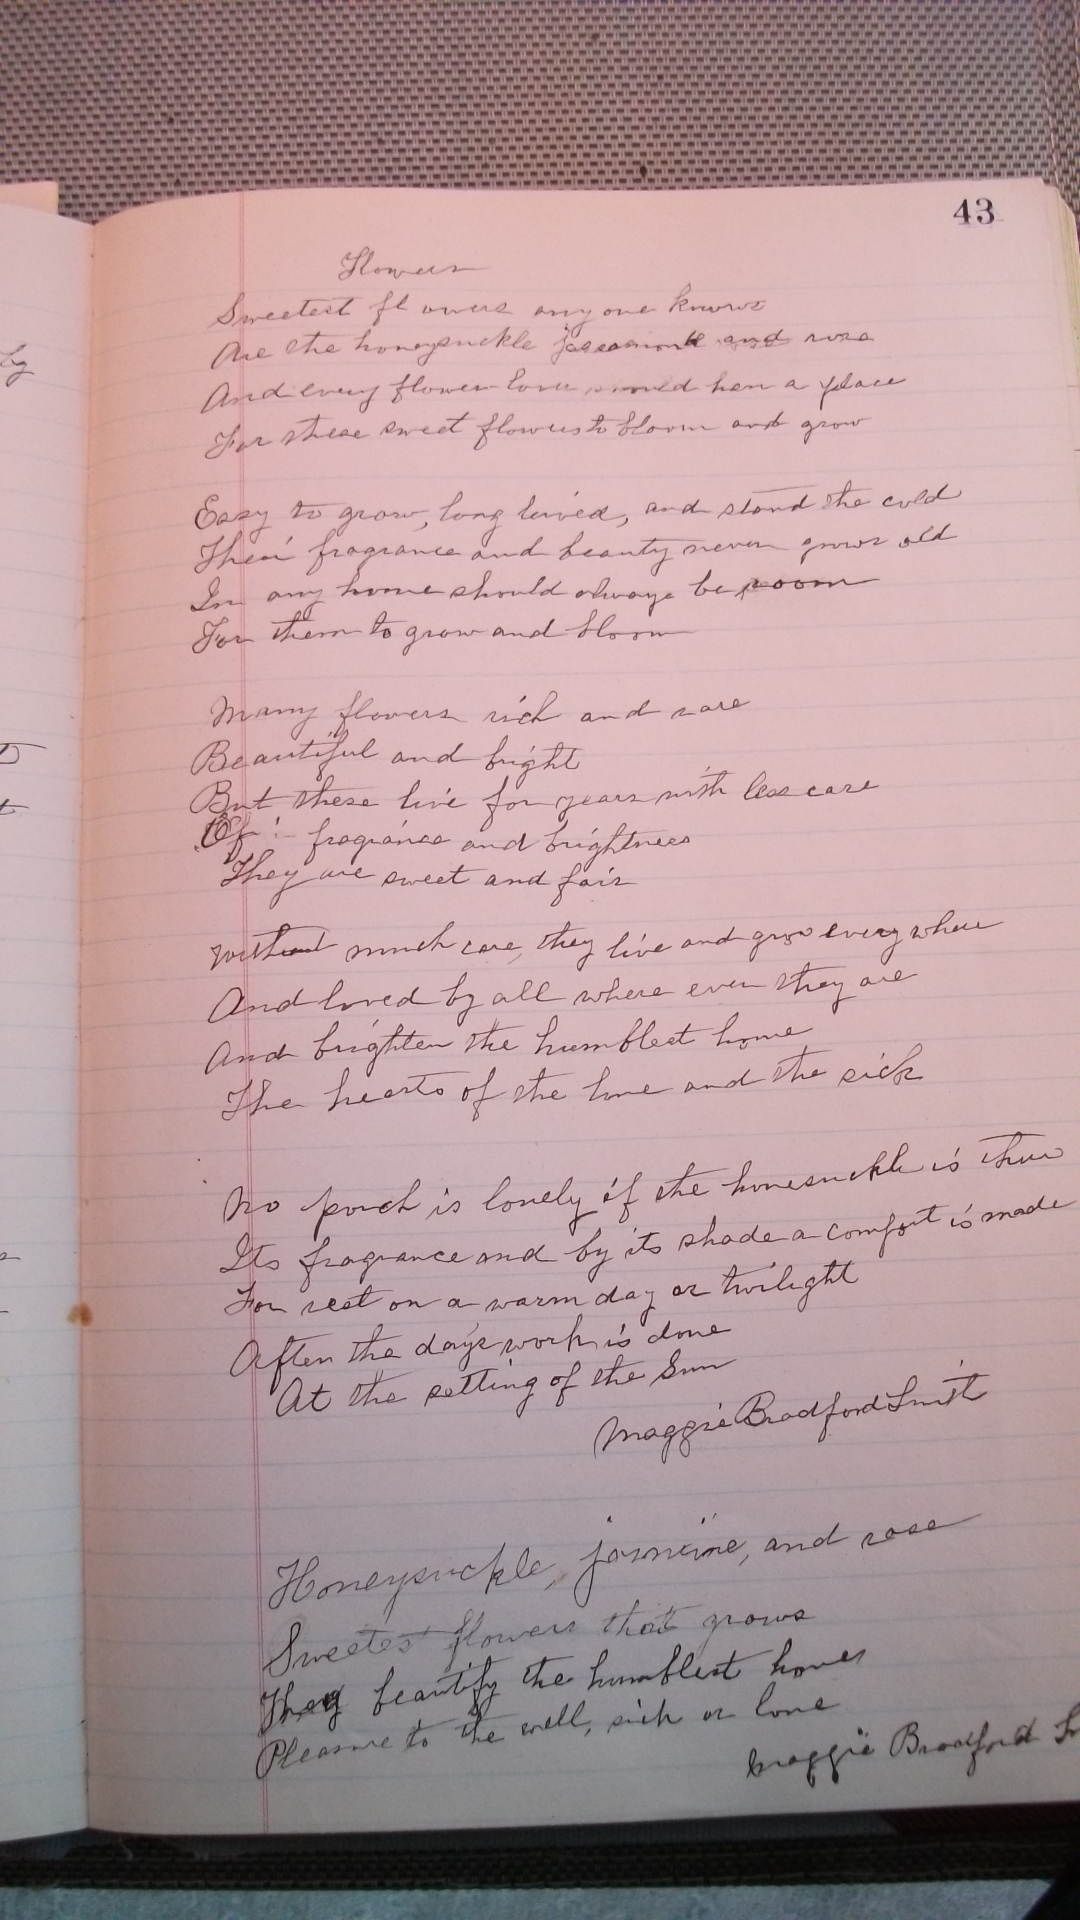 43
Flowers
Sweetest fl owers any one knows
Are the honeysuckle and rose
And every flower lover would have a place
For these sweet flowers to bloom and grow
Easy to grow, long lived, and stand the cold
Their fragrance and beauty never grows old
In any home should always be room
For them to grow and bloom
Many flowers rich and rare
Beautiful and bright
But these live for years with less care
Of fragrance and brightness
They are sweet and fair
Without much care, they live and grow every where
And loved by all where ever they are
And brighten the humblest home
The hearts of the lone and the sick
No porch is lonely if the honesuckle is there
Its fragrance and by its shade a comfort is made
For rest on a warm day or twilight
After the days work is done
At the setting of the Sun
Maggie Bradford Smith
Honeysuckle, jasmine, and rose
Sweetest flowers that grows
They beautify the humblest homes
Pleasure to the well, sick or lone
Maggie Bradford